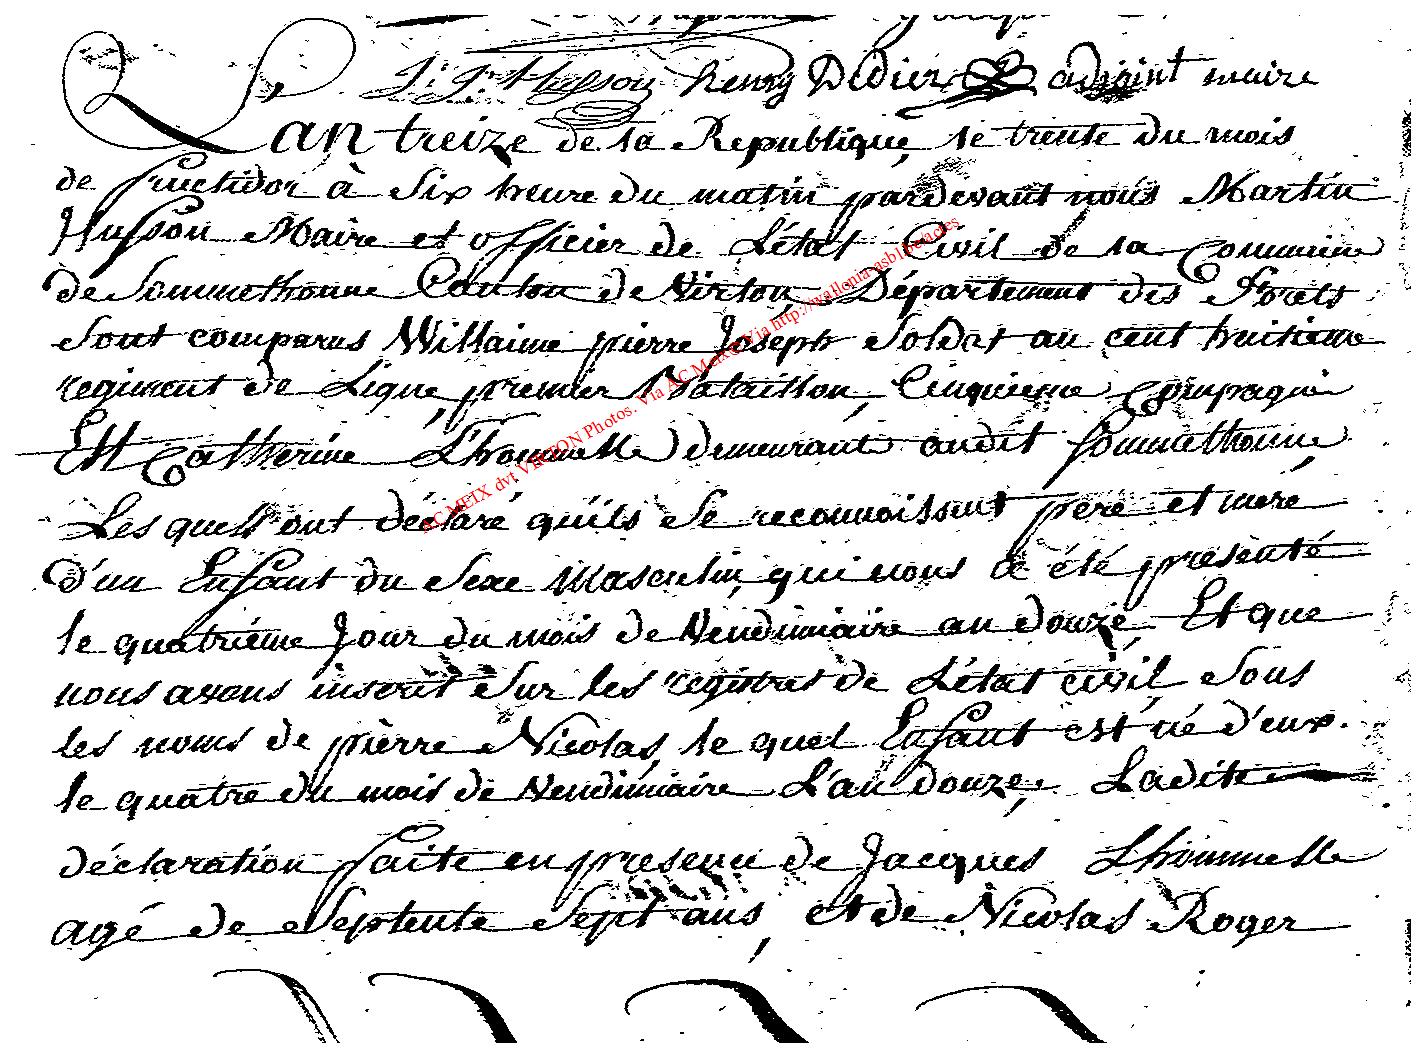 J: J: Husson henry Didier adjoint maire
Lan treize de la Republique, le trente du mois
de fructidor à Six heure du matin pardevant nous Martin
Husson Maire et officier de L'état Civil de la Commune
de Sommethonne Canton de Virton, Département des Forets
Sont comparus Willaime pierre Joseph Soldat au cent huitieme
regiment de Ligne, premier Bataillon, Cinquieme Compagnie
Ett Catherine Lhommelle demeurant audit Sommethonne
Les quels ont déclaré qu'ils Se reconnoissent père et mère
d'un Enfant du Sexe Masculin, qui nous a été présenté
le quatriéme Jour du mois de Vendimiaire an douze, Et que
nous avons inscrit Sur les registres de L'état civil Sous
les noms de pierre Nicolas, le quel Enfant est né d'eux.
le quatre du mois de Vendimiaire L'an douze, Ladite
déclaration faite en presence de Jacques Lhommelle
agé de Septente Sept ans, et de Nicolas Roger
ACMEIX dvt VIRTON Photos. Via ACMeix. Via http://wallonia-asbl.be/ades